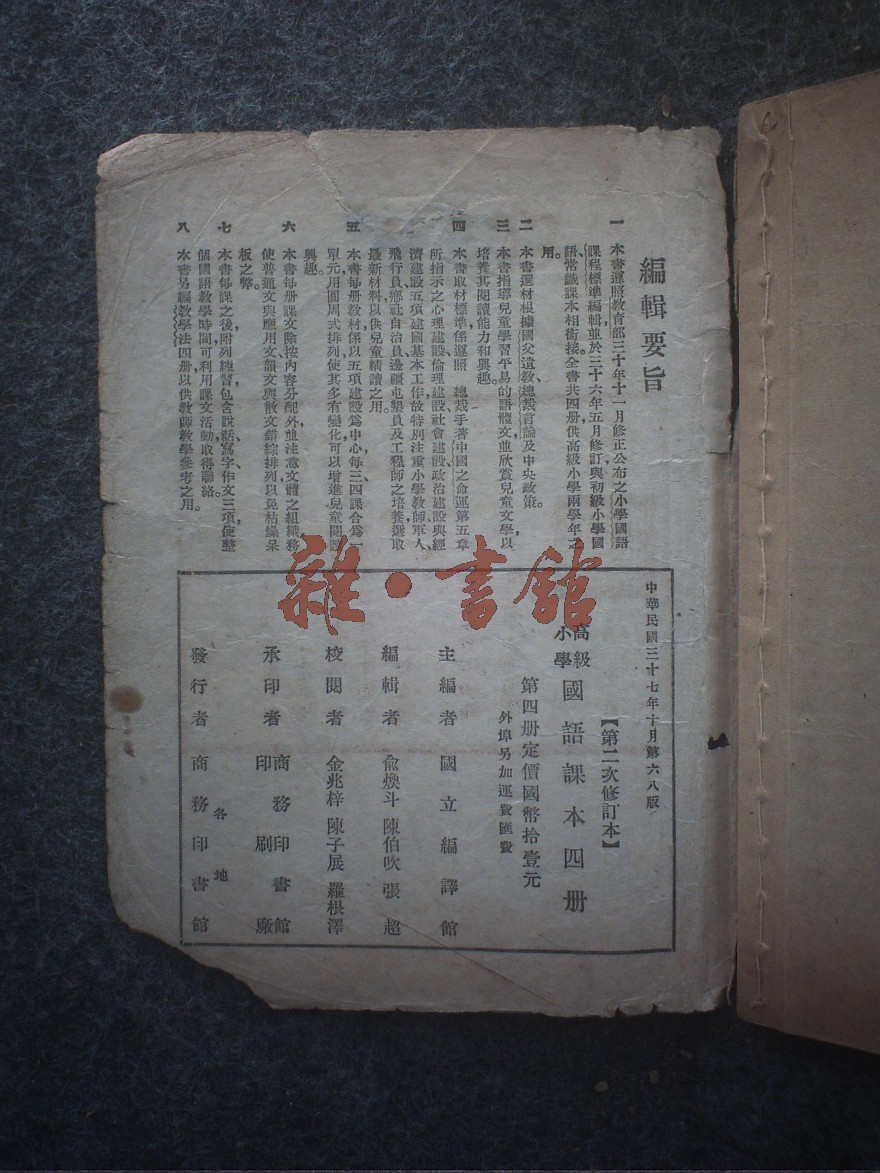 編輯要旨
一 本書遵照教育部三十年十一月修正公布之小學國語
課程標準編輯並於三十六年五月修訂與初級小學國
語、常識課本相銜接。全書共四册供高級小學兩學年之
用。
二 本書選材根據國父遺敎、總裁言論及中央政策。
三 本書指導兒童學習平易的語體文並欣賞兒童文學以
培養其閱讀能力和興趣。
四 本書取材標準係遵照 總裁手著中國之命運第五章
所指示之心理建設、倫理建設、社會建設、政治建設與經
濟建設五項建國基本工作故特別注重小學教師、軍人、
飛行員、鄉社自治員、邊疆屯墾員及工程師之培養選取
最新材料以供兒童精讀之用。
五 本書每册教材係以五項建設爲中心每三四課合爲一
單元用圓周式排列使其多有變化可以增進兒童閱讀
興趣。
六 本書每册課文除按內容分配外並注意文體之組織務
使普通文與應用文、韻文與散文錯綜排列以免枯燥呆
板之弊。
七 本書每課之後附列練習包含說話、寫字、作文三項使整
個國語教學時間可利用課文活動取得聯絡。
八 本書另編教學法四册以供教師教學參考之用。
中華民國三十七年十月第六八版
【第二次修訂本】
高級小學 國語課本四册
第四册定價國幣拾壹元
外埠另加運費匯費
主編者 國立編譯館
編輯者 俞煥斗 陳伯吹 張超
校閱者 金兆梓 陳子展 羅根澤
承印者 商務印書館印刷廠
發行者 各地商務印書館
雜·書館